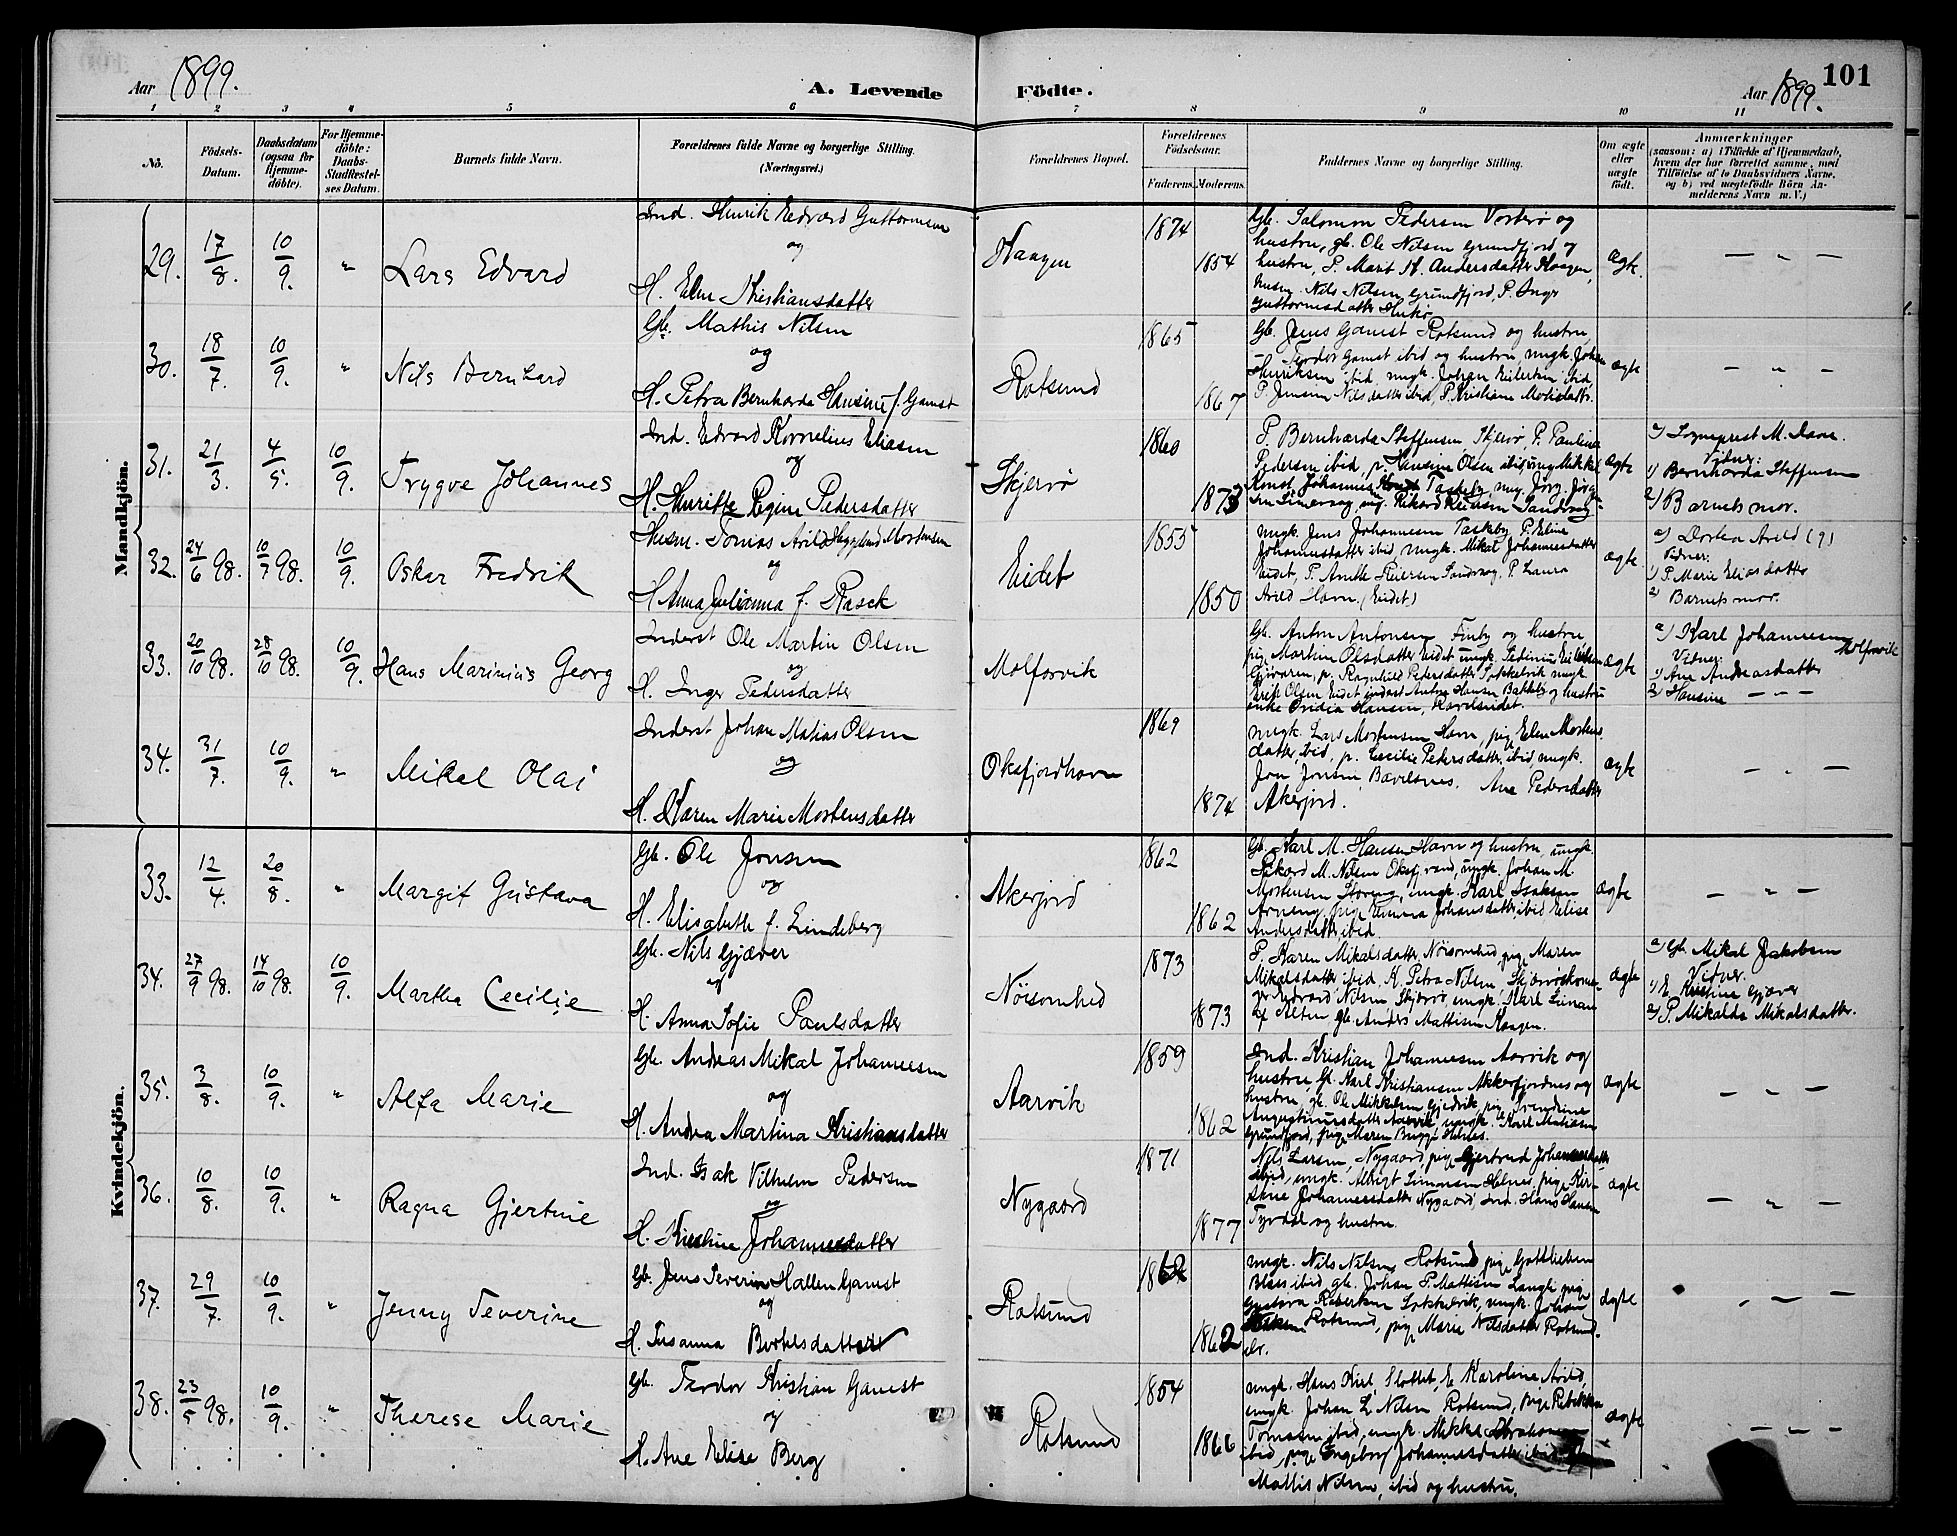 Aar 1899.
A. Levende
Födte.
Aar 1899.
101
1 2 3 4 5 6 7 8 9 10 11
No.
Födsels-
Datum.
Daabsdatum
(ogsaa for
Hjemme-
döbte).
For Hjemme-
döbte:
Daabs-
Stadfæstel-
ses Datum.
Barnets fulde Navn.
Forældrenes fulde Navne og borgerlige Stilling.
(Næringsvei.)
Forældrenes Bopæl.
Forældrenes
Födselsaar.
Faderens.
Moderens.
Faddernes Navne og borgerlige Stilling.
Om ægte
eller
uægte
födt.
Anmærkninger
(saasom: a) i Tilfælde af Hjemmedaab,
hvem der har forrettet samme, med
Tilföielse af to Daabsvidners Navne,
og b) ved uægtefödte Börn An-
melderens Navn m. V.)
Mandkjön.
29. 17/8. 10/9. " Lars Edvard
Ind. Henrik Edvard Guttormsen
og
H. Elen Kristiansdatter
Haagen
1874
1854
Gb. Salomon Pedersen Vorterø og
hustru, gb. Ole Nilsen Grundfjord og
hustru, P. Marit H. Andersdatter Haagen,
husm. Nils Nilsen Grundfjord, P. Inger
Guttormsdatter
ægte.
— " —
30. 18/7. 10/9. " Nils Bernhard
Gb. Mathis Nilsen
og
H. Petra Bernharda Hansine f. Gamst
Rotsund
1865
1867
Gb. Jens Gamst Rotsund og hustru,
Teodor Gamst ibid og hustru, ungk. Johan
Henriksen ibid, ungk. Johan Eilertsen ibid,
P. Jensine Nilsdatter ibid, P. Kristiane
ægte
— " —
31. 21/3. 4/5. 10/9. Trygve Johannes
Ind. Edvard Kornelius Eliasen
og
H. Henriette Regine Pedersdatter
Skjervø
1860
1873
P. Bernharda Steffensen Skjervø P. Pauline
Pedersen ibid, p. Hansine Olsen ibid, ung Mikkel
ægte
a) Sogneprest M.
Vidner:
1) Bernharda Steffensen
2) Barnets mor.
32. 24/6 98. 10/7 98. 10/9. Oskar Fredrik
Husm. Tomas Arild Mortensen
og
H. Anna Julianna f. Rasch
Eidet
1855
1850
ungk. Jens Johannesen Taskeby P. Eline
Johannesdatter ibid, ungk. Mikal Johannesdatter
Eidet, P. Anette Sandvaag, P. Laura
Arild Havn. (Eidet)
ægte
a) Dortea Arild (?)
Vidner:
1) P. Marie Eliasdatter
2) Barnets mor.
33. 20/10 98. 28/10 98. 10/9. Hans Marinius Georg
Inderst Ole Martin Olsen
og
H. Inger Pedersdatter
Molforvik
Gb. Anton Antonsen og hustru
pig Martine Olsdatter Eidet ungk. Pedinius
p. Ragnhild Pedersdatter ungk.
Olsen Eidet inderst Anton Hansen og hustru
enke Hansen,
ægte
a) Karl Johannesen
Molforvik
Vidner:
1) Ane Andreasdatter
2) Hansine — " —
34. 31/7. 10/9. " Mikal Olai
Inderst Johan Matias Olsen
og
H. Karen Marie Mortensdatter
Oksfjordhavn
1869
1874
ungk. Lars Mortensen Havn, pig Elen Mortens
datter ibid, p. Cecilie Pedersdatter ibid, ungk.
Jon Jonsen, Ane Pedersdatter
Akerjord.
ægte
— " —
Kvindekjön.
33. 12/4. 20/8. " Margit Gustava
Gb. Ole Jonsen
og
H. Elisabeth f. Lindeberg
Akerjord
1862
1862
Gb. Karl M. Hansen Havn og hustru, ungk.
Rikard M. Nilsen ungk. Johan M.
Mortensen Storeng, ungk. Karl Isaksen
pig Emma Johansdatter ibid Elise
Andersdatter ibid.
ægte
— " —
34. 27/9 98. 14/10 98. 10/9. Martha Cecilie
Gb. Nils Gjæver
og
H. Anna Sofie Paulsdatter
Nørsomhed
1873
1873
P. Karen Mikalsdatter, Nørsomhed, pig Maren
Mikalsdatter ibid, H. Petra Nilsen,
Edvard Nilsen Skjervø, ungk. Karl
gb. Anders Mattisen Haagen.
ægte
a) Gb. Mikal Jakobsen
Vidner.
1) E. Kristine Gjæver
2) P. Mikalda Mikalsdatter.
35. 3/8. 10/9. " Alfa Marie
Gb. Andreas Mikal Johannesen
og
H. Andrea Martina Kristiansdatter
Aarvik
1859
1862
Ind. Kristian Johannesen Aarvik og
hustru, Gb. Karl Kristiansen og
hustru, gb. Ole Mikkelsen
Augustinusdatter Aarvik, ungk. Karl Mathisen
Grundfjord, pig Maren Brigge Helnes.
ægte
— " —
36. 10/8. 10/9. " Ragna Gjertine
Ind. Isak Vilhelm Pedersen
og
H. Kirstine Johannesdatter
Nygaard
1871
1877
Nils Larsen, Nygaard, pig Gjertrud Johannesdatter
ibid, ungk. Albrigt Simonsen Helnes, pige Kir-
stine Johannesdatter Nygaard, Ind. Hans Hansen
Tyrdal og hustru.
ægte
— " —
37. 29/7. 10/9. " Jenny Severine
Gb. Jens Severin Hallen Gamst
og
H. Susanna Bertelsdatter
Rotsund
1862
1862
ungk. Nils Nilsen, Rotsund, pig Gottliebine
ibid, gb. Johan P. Mattisen pig
Gustava Robertsen ungk. Johan
Rotsund, pig Marie Nilsdatter Rotsund-
elv.
ægte
— " —
38. 23/5 98. 10/9. " Therese Marie
Gb. Teodor Kristian Gamst
og
H. Ane Elise Berg
Rotsund
1854
1866
ungk. Hans Kiil, Slottet, E. Karoline Arild,
ungk. Johan L. Nilsen Rotsund, pige Rebekka
Tomasen ibid, ungk. Mikkel Abrahamsen
ibid, pige Ingeborg Johannesdatter ibid
Mattis Nilsen, ibid og hustru.
ægte
— " —